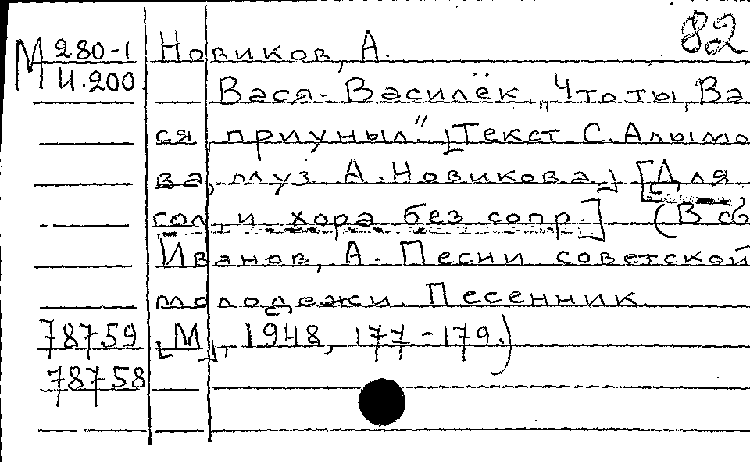 82
М 280-1 Новиков, А.
И.200 Вася-Василёк „Что ты, Ва
ся приуныл" [Текст С. Алымо
ва, муз А. Новикова] [Для
сол. и хора без сопр.] (В сб
Иванов, А. Песни советской
молодежи. Песенник
78759 [М], 1948, 177-179.)
78758